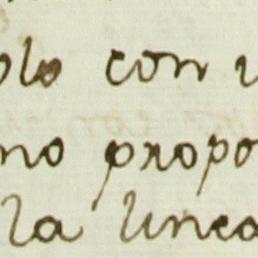 olo con
no propo
la linea